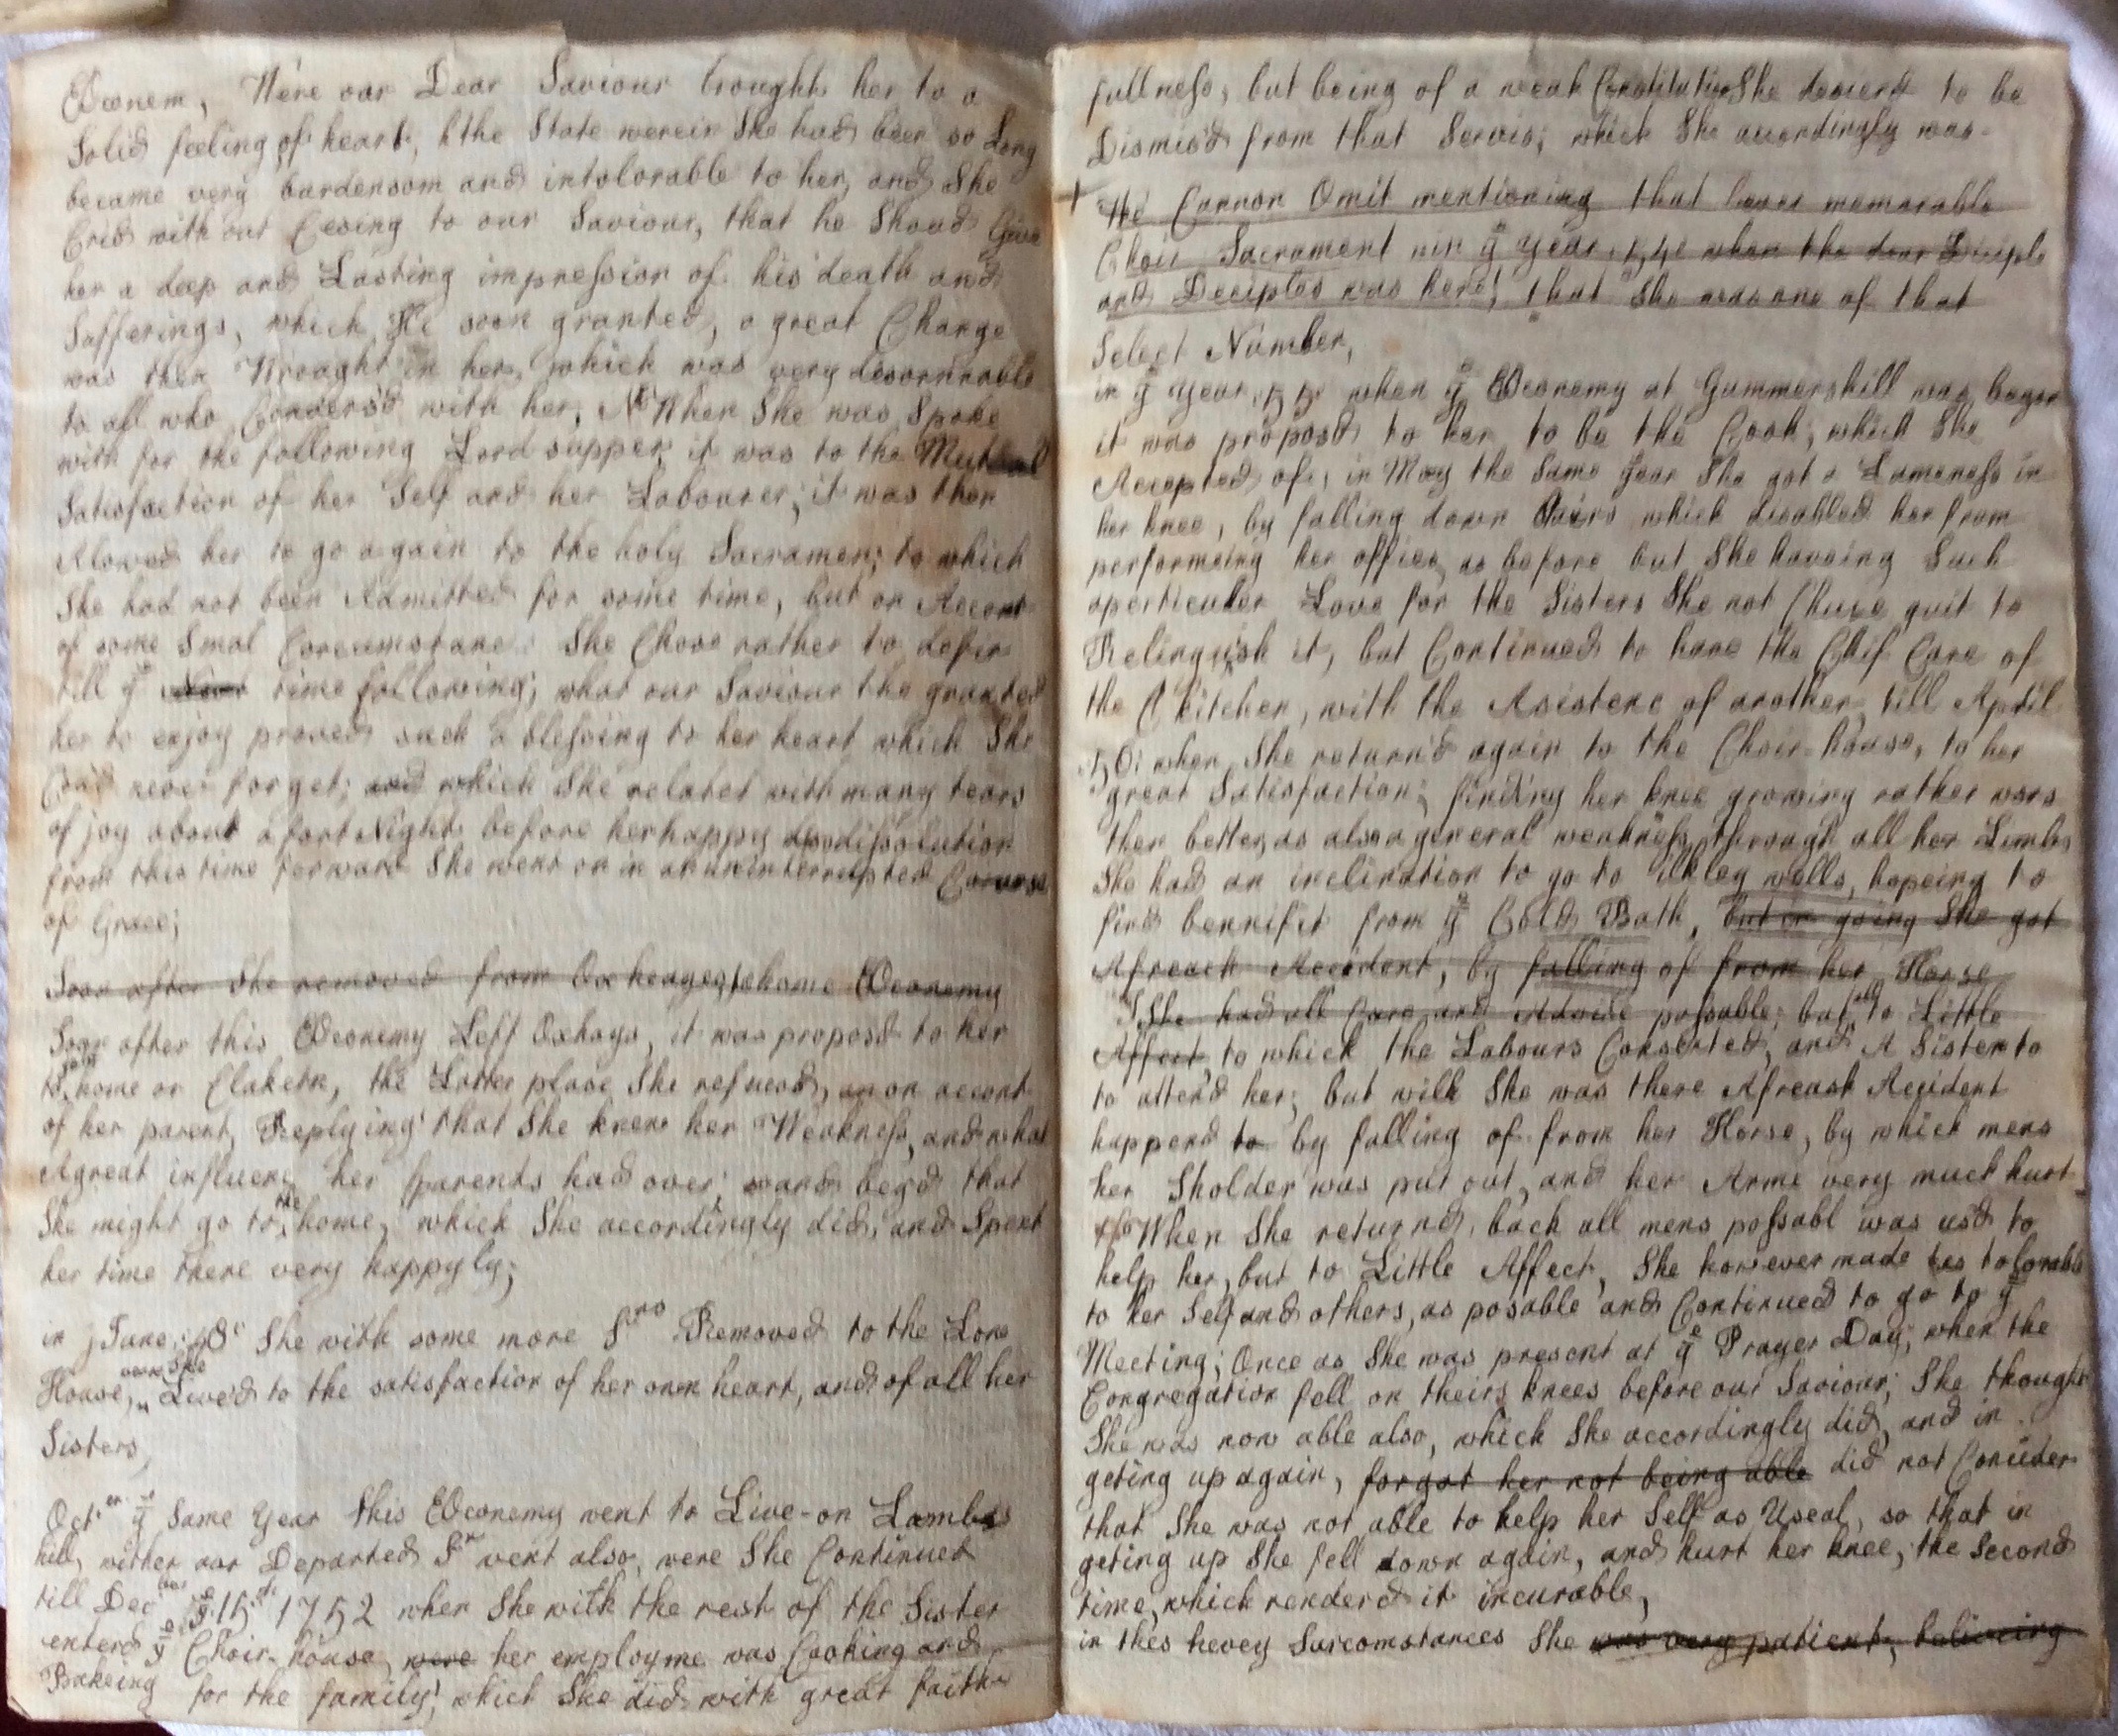 Oeconem, Here our Dear Saviour brought her to a
Solid feeling of heart, the State werein She had been so Long
became very burdensom and intolorable to her, and She
Cried with out Ceesing to our Saviour, that he Shoud Give
her a deep and Lasting impression of his death and
Sufferings, which He soon granted, a great Change
was then Wrought in her, which was very desarnnable
to all who Conversd with her, When She was Spoke
with for the following Lord supper, it was to the Mutual
Satisfaction of her Self and her Labourer; it was then
Alowed her to go again to the holy Sacramen; to which
She had not been Admitted for some time, but on Accont
of some Smal Corcumstane She Chose rather to defer
till ye Next time following; what our Saviour the granted
her to enjoy proved such a blessing to her heart which She
Coud never forget; and which She relatet with many tears
of joy about a fort Night before her happy dissolution
from this time forward She went on in an uninterrupted Course
of Grace;
Soon after She removed from home Oeconemy
Soon after this Oeconemy Left Oxhays, it was proposd to her
to home or Claketn, the Latter place She refuesd, on accont
of her parent, Replying that She knew her Weakness, and what
A great influenc her parents had over; and beg'd that
She might go to the home, which She accordingly did, and Spent
her time there very happyly;
in June She with some more Srs Removed to the Lone
House, were She Live'd to the satisfaction of her own heart, and of all her
Sisters,
Octer ye Same Year this Oeconemy went to Live on Lambs
hill, wither our Departed Sr went also, were She Continued
till Decber ye 15th 1752 when She with the rest of the Sister
enterd ye Choir-house, were her employme was Cooking and
Bakeing for the family, which She did with great faith
fullness, but being of a weak Constitution She desierd to be
Dismis'd from that Servis; which She accordingly was-
+ We Cannon Omit mentioning that memorable
Choir Sacrament in ye year, when the dear Disciple
and Deciples was here! that She was one of that
Select Number,
in ye year, 55 when ye Oeconemy at Gummershill was began
it was proposd to her to be the Cook, which She
Accepted of, in May the same year She got a Lameness in
her knee, by falling down which disabled her from
performeing her office, as before but She haveing Such
a perticuler Love for the Sisters She not Chuse quit to
Relinquish it, but Continued to have the Chif Care of
the kitchen, with the Asistenc of another, till April
when She return'd again to the Choir-house, to her
great Satisfaction; finding her knee growing rather wors
then better, as also a general weakness through all her Limbs
She had an inclination to go to ilkley wells, hopeing to
find bennifit from ye Cold Bath, but on going She got
A freash Accedent, by falling of from her Horse
She had all Care and Advise possable; but all to Little
Affect, to which the Labours Consented, and A Sister to
to attend her; but will She was there A freash Accident
happend to by falling of from her Horse, by which mens
her Sholder was put out, and her Arme very much hurt
When She returnd back all mens possabl was usd to
help her, but to Little Affect, She however made tolorable
to her Self and others, as posable and Continued to go to ye
Meeting; Once as She was present at ye Prayer Day, when the
Congregation fell on theirs knees before our Saviour; She thought
She was now able also, which She accordingly did, and in
geting up again, forgot her not being able did not Concider
that She was not able to help her Self as Useal, so that in
geting up She fell down again, and hurt her knee, the Second
time, which renderd it incurable,
in thes hevey Surcomstances She was very patient, beliveing